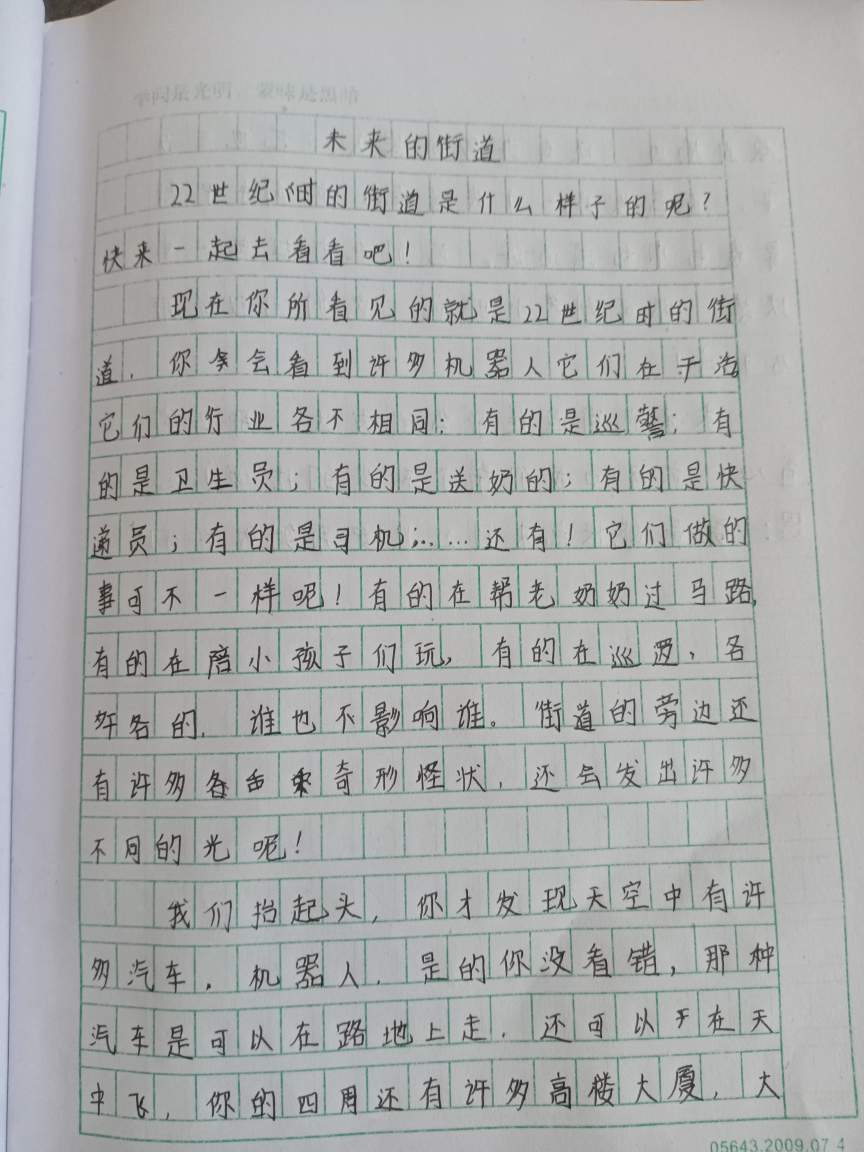 未来的街道
22世纪时的街道是什么样子的呢?
快来一起去看看吧!
现在你所看见的就是22世纪时的街
道,你会看到许多机器人它们在干活
它们的行业各不相同:有的是巡警;有
的是卫生员;有的是送奶的;有的是快
递员;有的是司机;……还有!它们做的
事可不一样呢!有的在帮老奶奶过马路,
有的在陪小孩子们玩,有的在巡逻,各
各的,谁也不影响谁。街道的旁边还
有许多各奇形怪状,还会发出许多
不同的光呢!
我们抬起头,你才发现天空中有许
多汽车,机器人,是的你没看错,那种
汽车是可以在路地上走,还可以在天
中飞,你的四周还有许多高楼大厦,大
05643.2009.07.4